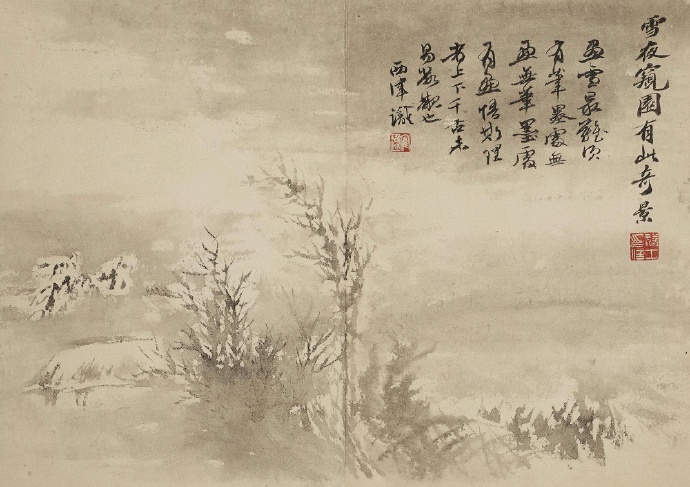 雪夜窺園有此奇景
畫雪最難須
有筆墨處無
畫無筆墨處
有畫悟斯理
者上下千古未
易數覯也
西津